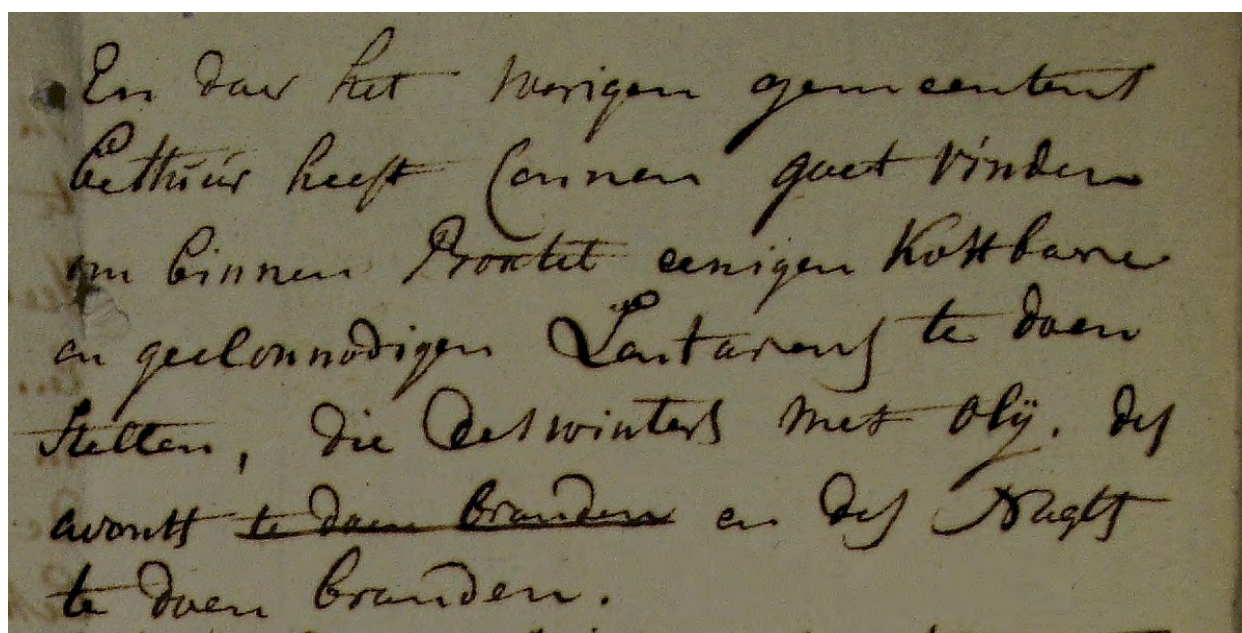 En daar het vorigen gemeentens
bestuúr heeft Connen goet vinden
om binnen Boxtel eenigen Kostbare
en geel onnodigen Lantarens te doen
stellen, die des winters met olij. des
avonts te doen branden en des Nagts
te doen branden.